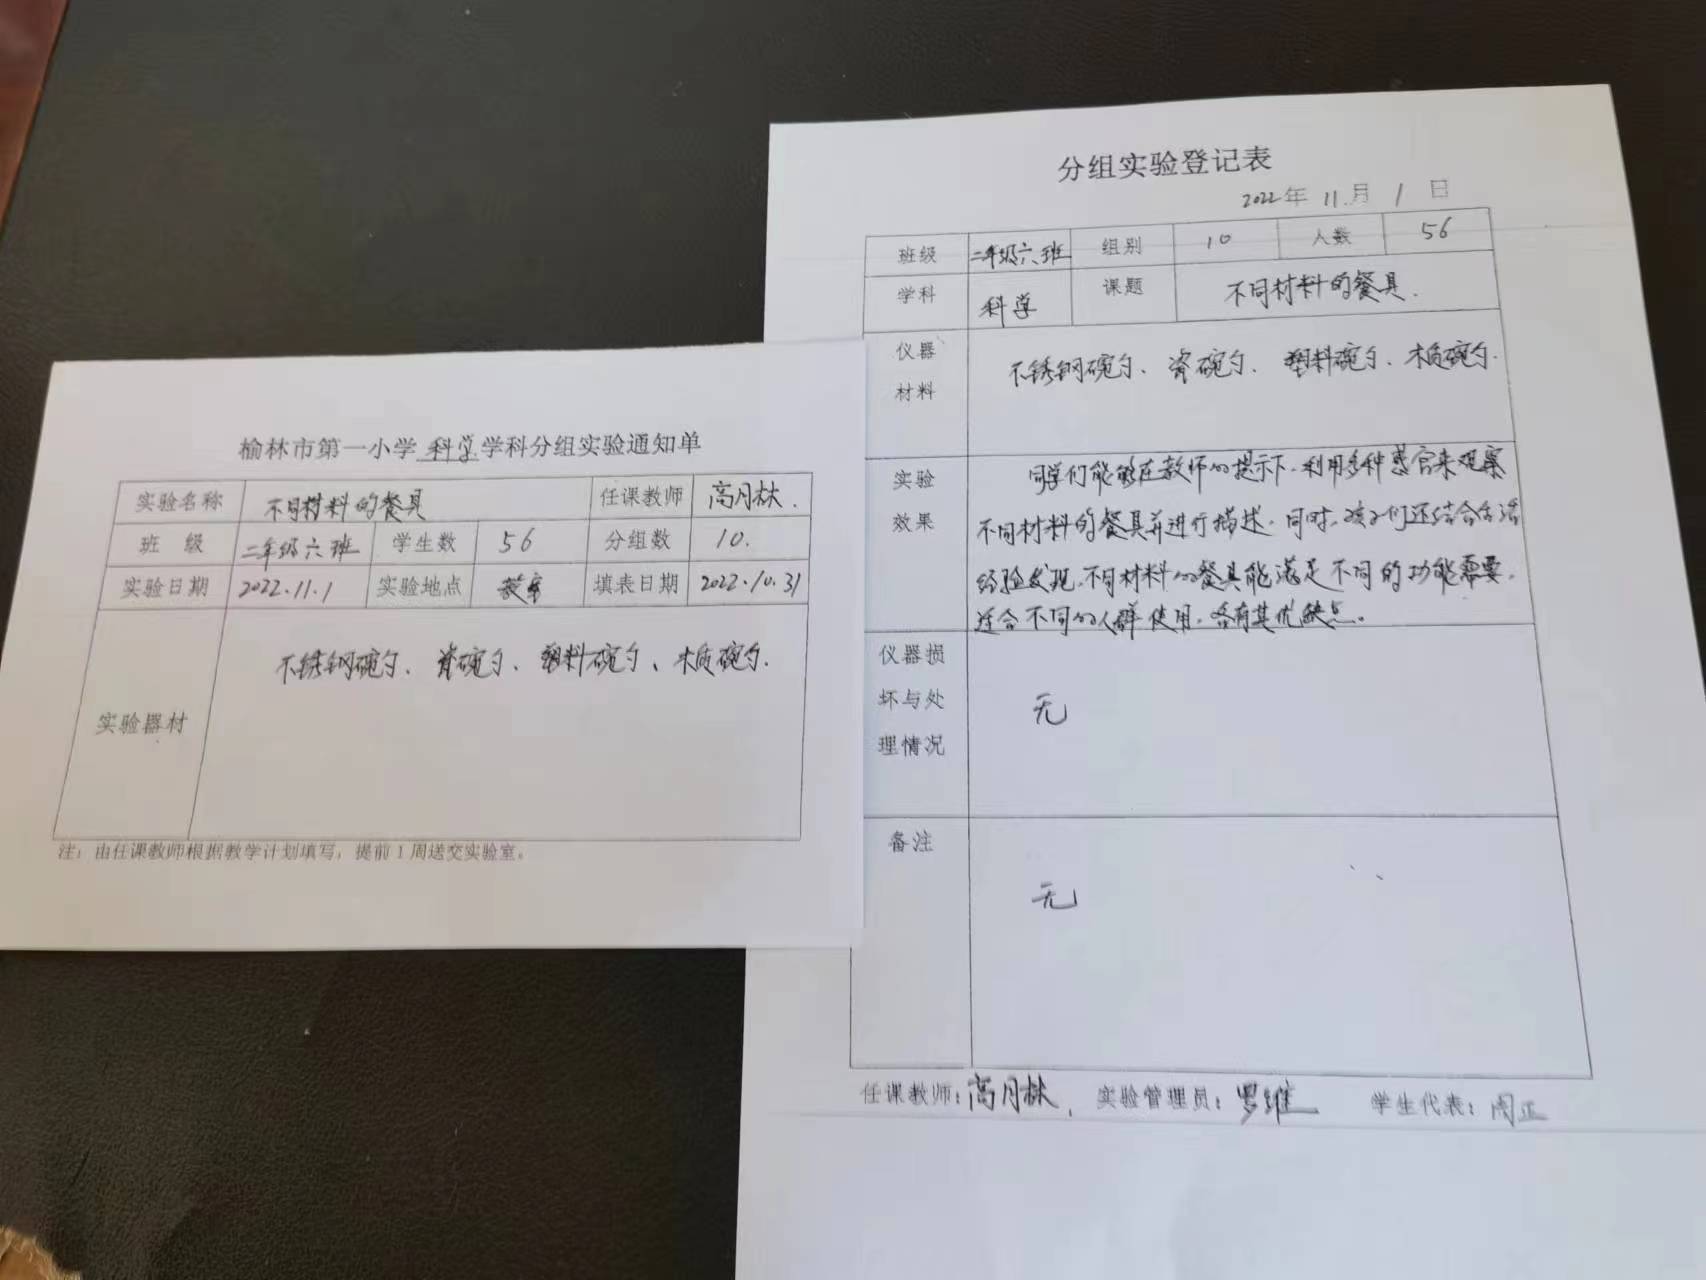 榆林市第一小学 科学 学科分组实验通知单
实验名称 不同材料的餐具 任课教师 高月林.
班 级 二年级六班 学生数 56 分组数 10.
实验日期 2022.11.1 实验地点 教室 填表日期 2022.10.31
实验器材 不锈钢碗勺、瓷碗勺、塑料碗勺、木质碗勺.
注：由任课教师根据教学计划填写，提前1周送交实验室。
分组实验登记表
2022年 11.月 1 日
班级 二年级六班 组别 10 人数 56
学科 科学 课题 不同材料的餐具.
仪器
材料
不锈钢碗勺、瓷碗勺、塑料碗勺、木质碗勺.
实验
效果
同学们能够在教师的提示下,利用多种感官来观察
不同材料的餐具并进行描述,同时,孩子们还结合生活
经验发现,不同材料的餐具能满足不同的功能需要,
适合不同的人群使用,各有其优缺点。
仪器损
坏与处
理情况
无
备注
无
任课教师：高月林. 实验管理员：罗维 学生代表：闫正